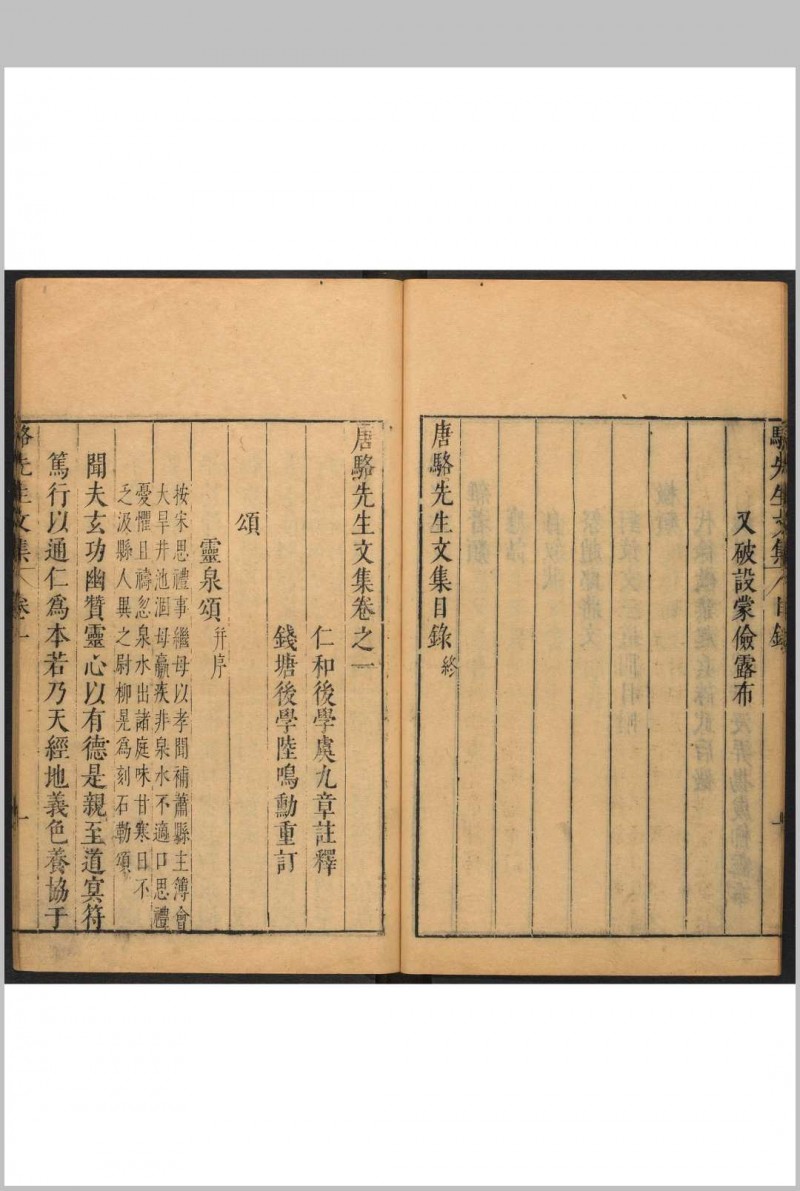 駱先生文集 目錄 一
又破設蒙儉露布
唐駱先生文集目錄終
唐駱先生文集卷之一
仁和後學虞九章註釋
錢塘後學陸鳴勳重訂
頌
靈泉頌并序
按宋思禮事繼母以孝聞補蕭縣主簿會
大旱井池涸母羸疾非泉水不適口思禮
憂懼且禱忽泉水出諸庭味甘寒日不
之汲縣人異之尉柳晃為刻石勒頌
聞夫玄功幽贊靈心以有德是親至道冥符
篤行以通仁爲本若乃天經地義色養協于
駱先生文集 卷一 一